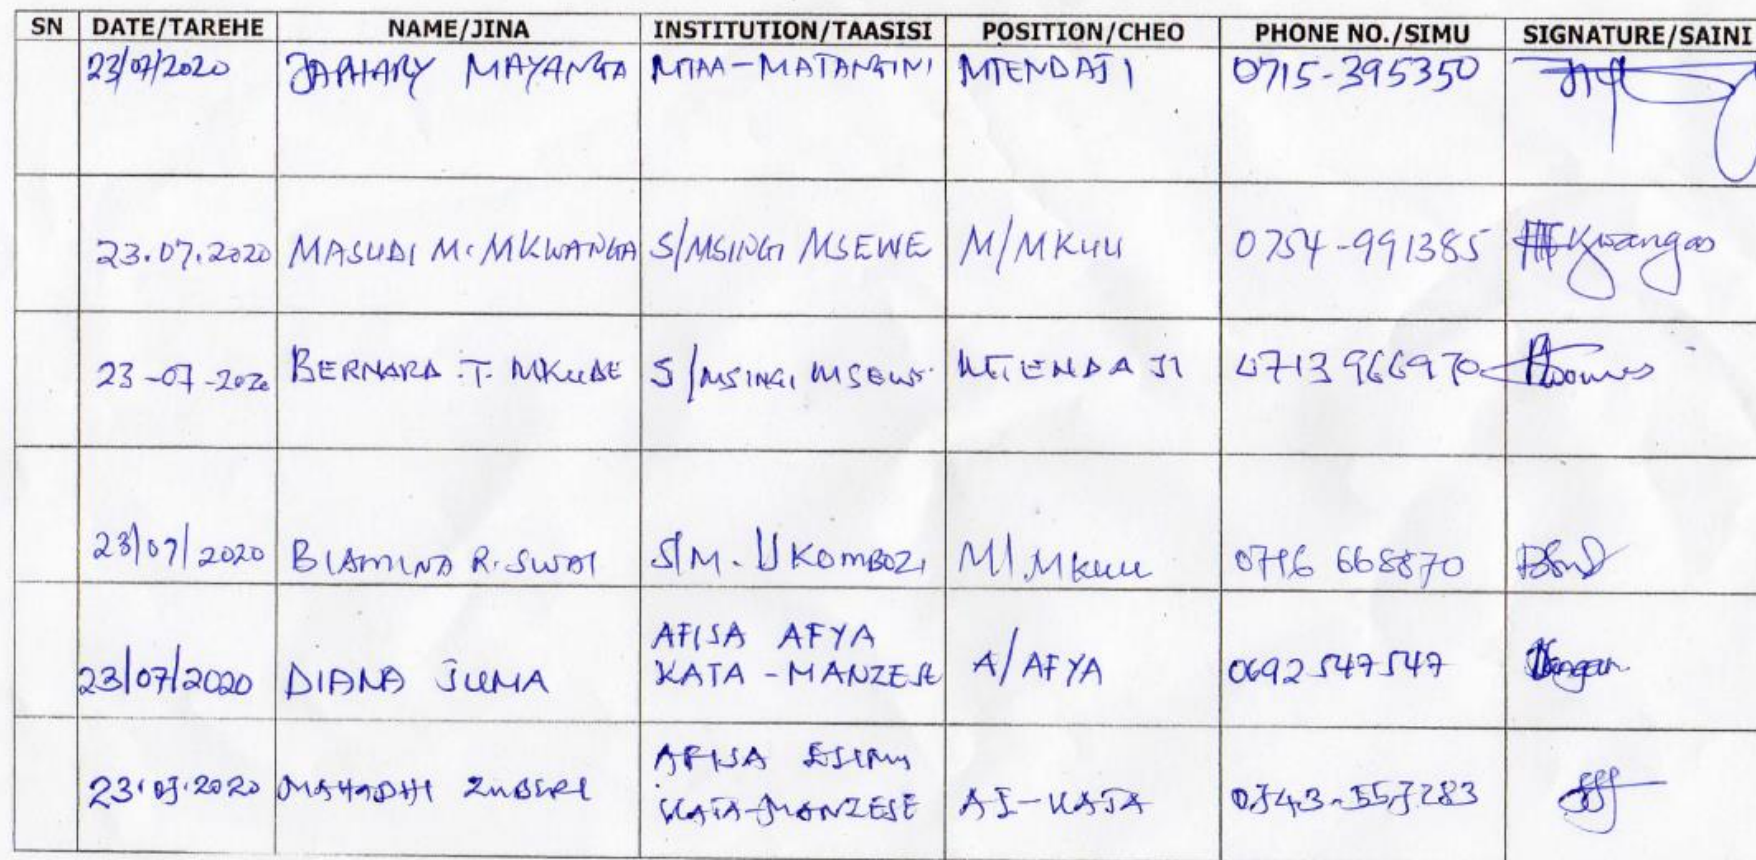 SN DATE/TAREHE NAME/JINA INSTITUTION/TAASISI POSITION/CHEO PHONE NO./SIMU SIGNATURE/SAINI
23/07/2020 JAPHARY MAYANGA MTAA-MATANGINI MTENDAJI 0715-395350
23.07.2020 MASUDI M. MKWANGA S/MSINGI MSEWE M/MKUU 0754-991385
23-07-2020 BERNARD .T. MKUDE S/MSINGI MSEWE MTENDAJI 0713 966970
23/07/2020 R. SWAI S/M. UKOMBOZI M/.MKUU 0716 668870
AFISA AFYA
23/07/2020 DIANA JUMA KATA - MANZESE A/AFYA 0692 547547
AFISA ELIMU
23.07.2020 ZUBERI KATA-MANZESE AE-KATA 0743-557283